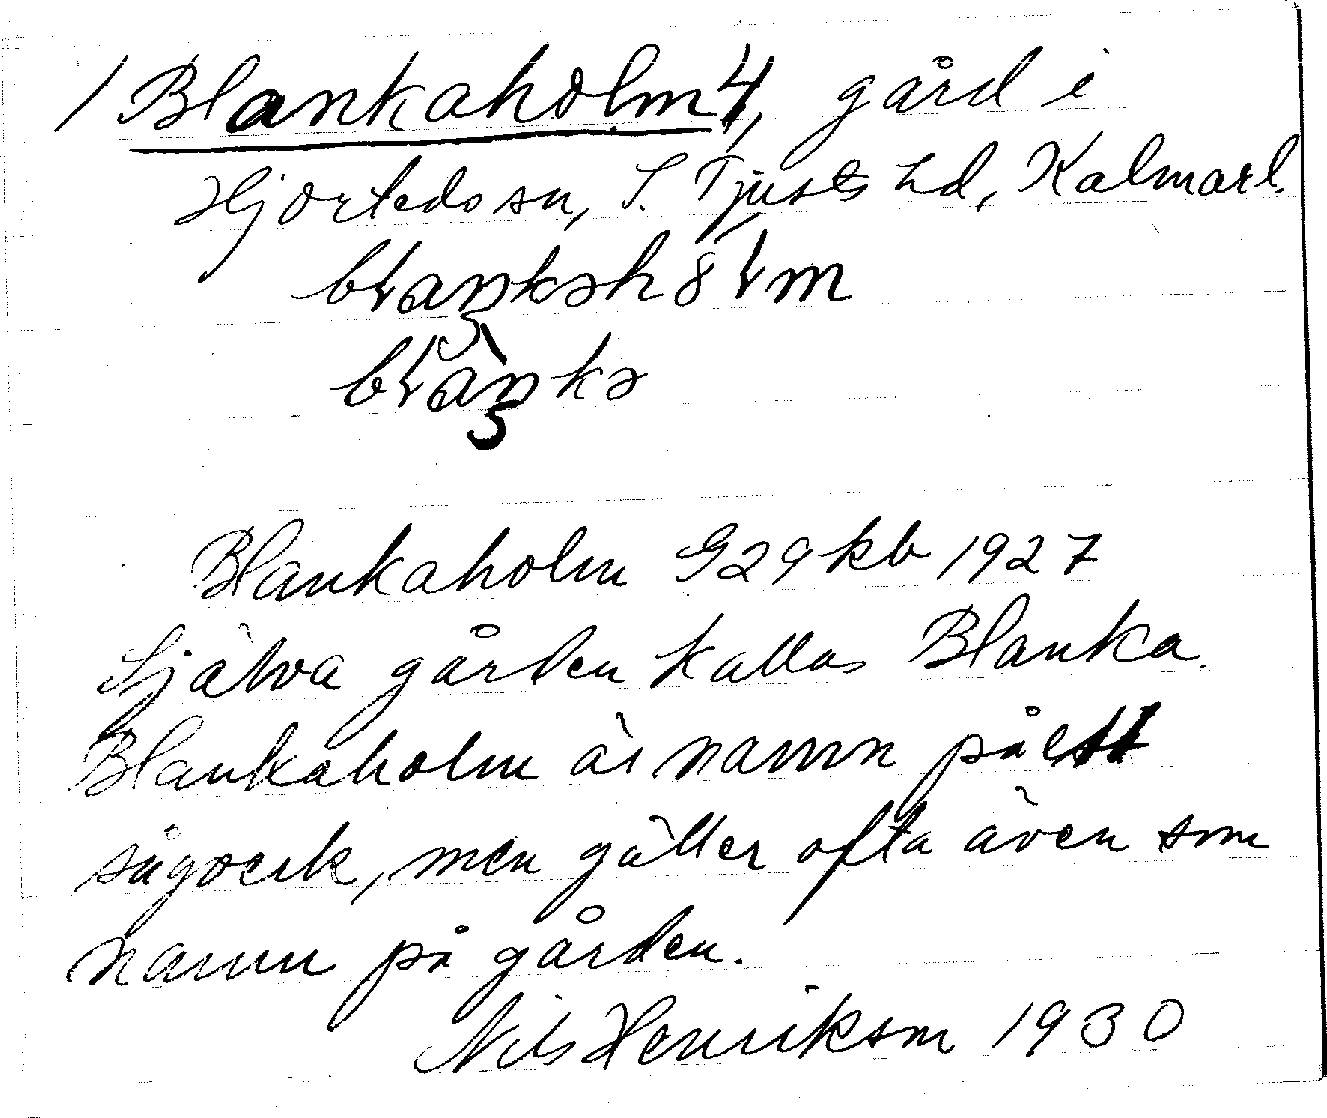 / Blankaholm 4, gård i
Hjorteds sn, S. Tjusts hd, Kalmar l.
blaŋkəh8lm
blàŋkə
Blankaholm G29kb 1927
Själva gården kallas Blanka.
Blankaholm är namn på ett
sågverk, men gäller ofta även som
namn på gården.
Nils Henrikson 1930